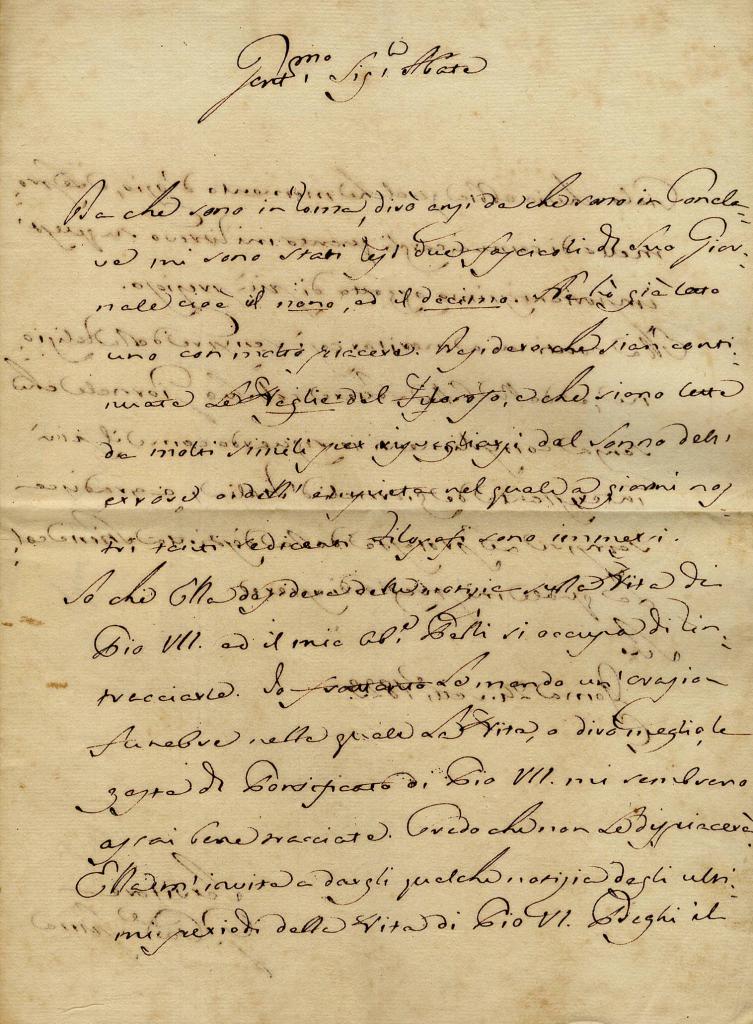 Gent.mo Sig.r Abate
Da che sono in Roma, dirò anzi da che sono in Concla-
ve mi sono stati resi due fascicoli di Suo Gior-
nale cioè il nono, ed il decimo. Ne ho già letto
uno con molto piacere. Desidero che sian conti-
nuate Le Veglie del Filosofo, e che siano lette
da molti simili per risvegliarsi dal sonno dell'
errore o dell' empietà nel quale a' giorni nos-
tri tanti sedicenti Filosofi sono immersi.
So che Ella desidera delle notizie sulla Vita di
Pio VII. ed il mio Ab.e Belli si occupa di rin-
tracciarle. Io frattanto Le mando un' orazion
funebre nella quale La Vita, o dirò meglio, le
gesta di Pontificato di Pio VII. mi sembrano
assai bene tracciate. Credo che non Le dispiacerà
Ella m' invita a dargli qualche notizia degli ulti-
mi periodi della Vita di Pio VI. Preghi il